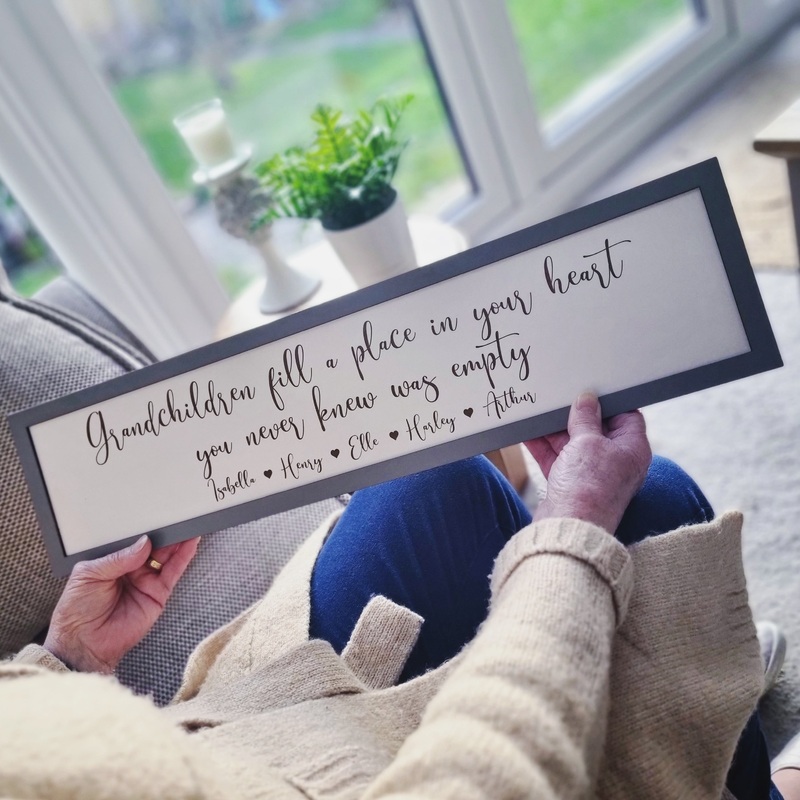 Grandchildren fill a place in your heart
you never knew was empty
Isabella ♥ Henry ♥ Elle ♥ Harley ♥ Arthur